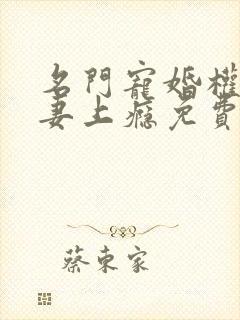 名門寵婚權
妻上癮免費
蔡東家